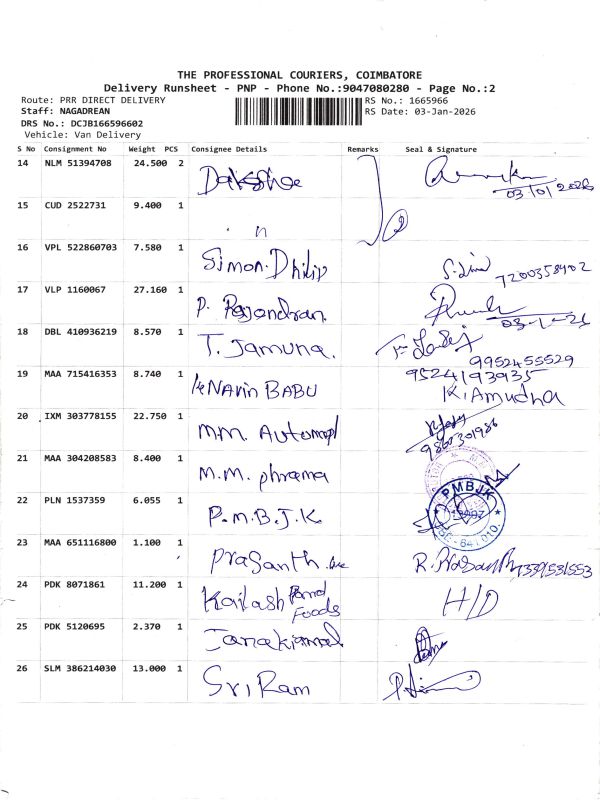 THE PROFESSIONAL COURIERS, COIMBATORE
Delivery Runsheet - PNP - Phone No.:9047080280 - Page No.:2
Route: PRR DIRECT DELIVERY RS No.: 1665966
Staff: NAGADREAN RS Date: 03-Jan-2026
DRS No.: DCJB166596602
Vehicle: Van Delivery
S No Consignment No Weight PCS Consignee Details Remarks Seal & Signature
14 NLM 51394708 24.500 2
03/01/2026
15 CUD 2522731 9.400 1 " n
16 VPL 522860703 7.580 1 Simon. Philip
7200358402
17 VLP 1160067 27.160 1 P. Rajandran
03-1-26
18 DBL 410936219 8.570 1 T. Jamuna.
9952455529
19 MAA 715416353 8.740 1 K Navin BABU 9524193935
K. Amudha
20 IXM 303778155 22.750 1 M.M. Automopl
9860301986
21 MAA 304208583 8.400 1 M.M. phrama
22 PLN 1537359 6.055 1 P.M.B.J.K PMBJK
23 MAA 651116800 1.100 1 Prasanth R. Prasanth
24 PDK 8071861 11.200 1 Kailash Pand Foods H/D
25 PDK 5120695 2.370 1 Janakiamal
26 SLM 386214030 13.000 1 Sri Ram